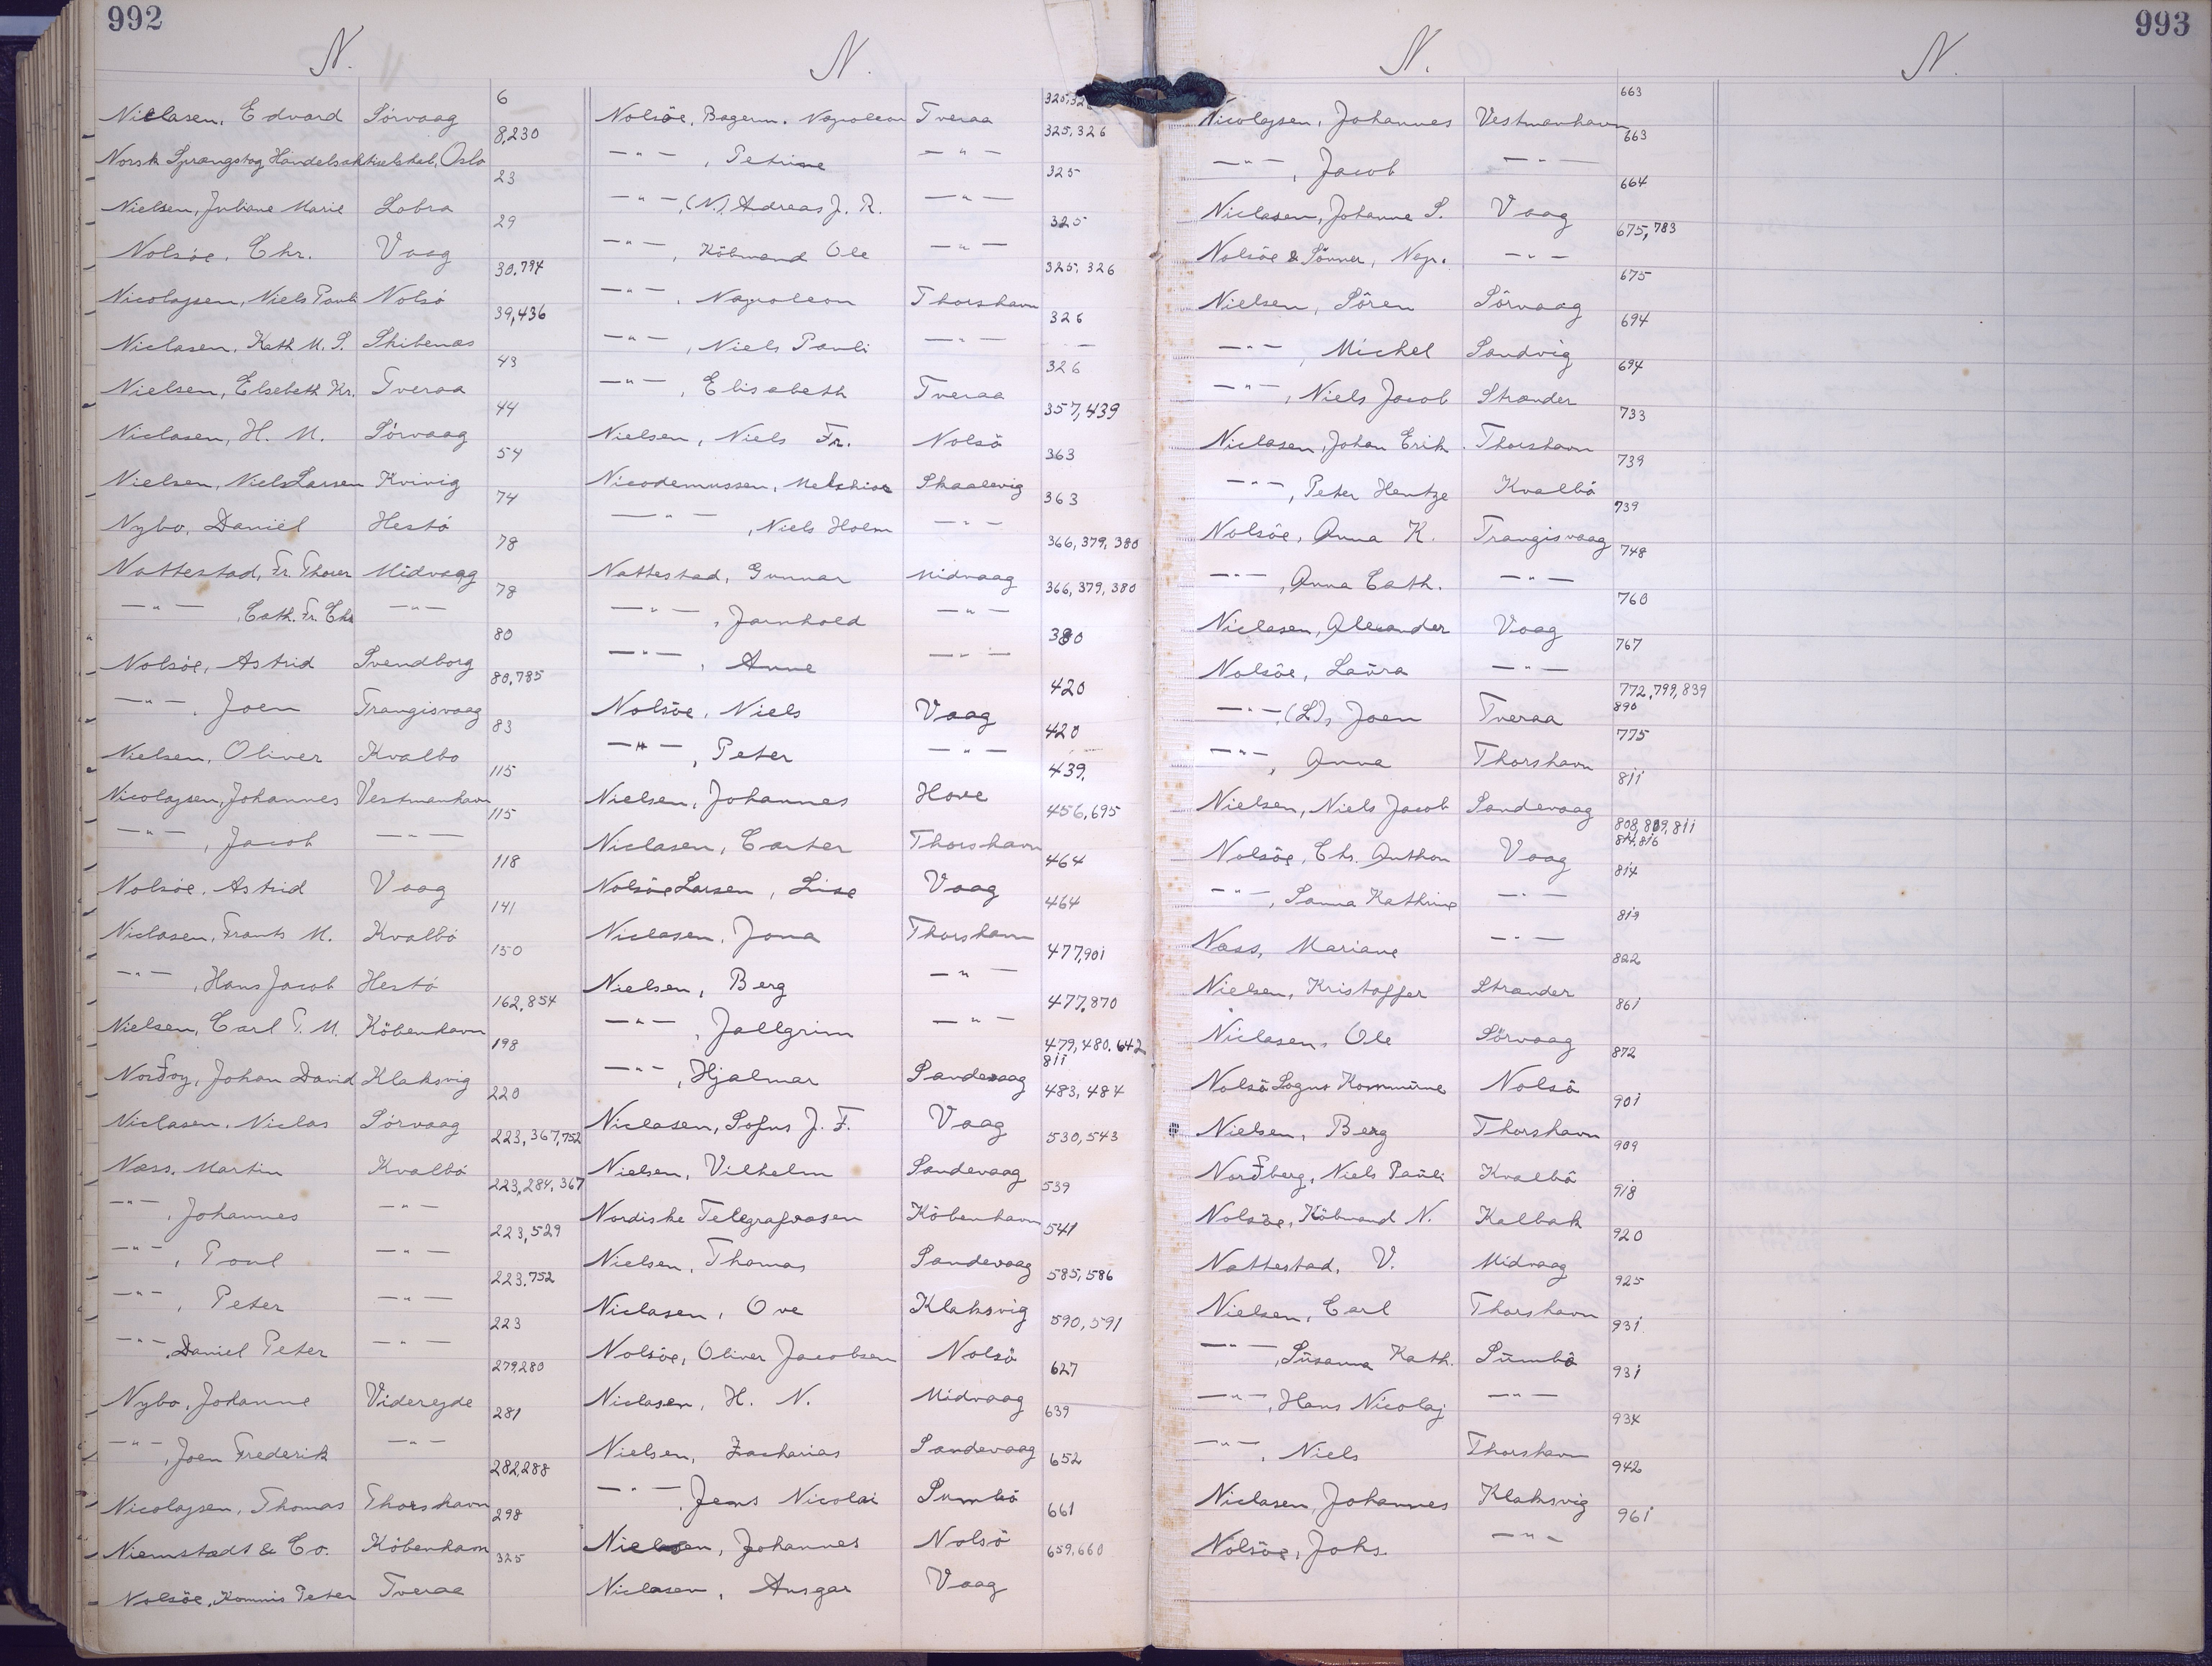 992
N.
Niclasen, Edvard Sórvaag 6
Norsk Sprængstof Handelsaktieselskab, Oslo 8,230
Nielsen, Juliane Marie Lobra 23
Nolsóe, Chr. Vaag 29
Nicolajsen, Niels Pauli Nolsó 30,794
Niclasen, Kath M. S. Skibenæs 39,436
Nielsen, Elsebeth Kr. Tveraa 43
Niclasen, H. M. Sórvaag 44
Nielsen, Niels Larsen Kvivig 54
Nybo, Daniel Hestó 74
Nattestad, Fr. Thorer Midvaag 78
— " — , Cath. Fr. Chr — " — 78
Nolsóe, Astrid Svendborg 80
— " — , Joen Trangisvaag 80,785
Nielsen, Oliver Kvalbo 83
Nicolajsen, Johannes Vestmanhavn 115
— " — , Jacob — " — 115
Nolsóe, Astrid Vaag 118
Niclasen, Frants M. Kvalbó 141
— " — , Hans Jacob Hestó 150
Nielsen, Carl P. M. Kóbenhavn 162,854
Norðoy, Johan David Klaksvig 198
Niclasen, Niclas Sórvaag 220
Næss, Martin Kvalbó 223,367,752
— " — , Johannes — " — 223,284,367
— " — , Poul — " — 223,529
— " — , Peter — " — 223,752
— " — , Daniel Peter — " — 223
Nybo, Johanne Viderejde 279,280
— " — , Joen Frederik — " — 281
Nicolajsen, Thomas Thorshavn 282,288
Niemstædt & Co. Kóbenhavn 298
Nolsöe, Kommis Peter Tveraa 325
N.
Nolsöe, Bagerm. Napoleon Tveraa 325,32
— " — , Petrine — " — 325,326
— " — , (N), Andreas J. R. — " — 325
— " — , Köbmand Ole — " — 325
— " — , Napoleon Thorshavn 325,326
— " — , Niels Pauli — " — 326
— " — , Elisabeth Tveraa 326
Nielsen, Niels Fr. Nolsö 357,439
Nicodemussen, Melchior Skaalevig 363
— " — , Niels Holm — " — 363
Nattestad, Gunnar Midvaag 366,379,380
— " — , Jarnhold — " — 366,379,380
— " — , Anne — " — 380
Nolsöe, Niels Vaag 420
— " — , Peter — " — 420
Nielsen, Johannes Hove 439.
Niclasen, Carter Thorshavn 456,695
Nolsöe Larsen, Lise Vaag 464
Niclasen, Jona Thorshavn 464
Nielsen, Berg — " — 477,901
— " — , Jallgrim — " — 477,870
— " — , Hjalmar Sandevaag 479,480,642
811
Niclasen, Sofus J. F. Vaag 483,484
Nielsen, Vilhelm Sandevaag 530,543
Nordiske Telegrafvæsen Köbenhavn 539
Nielsen, Thomas Sandevaag 541
Niclasen, Ove Klaksvig 585,586
Nolsöe, Oliver Jacobsen Nolsö 590,591
Niclasen, H. N. Midvaag 627
Nielsen, Zacharias Sandevaag 639
— " — , Jens Nicolai Sumbö 652
Nielsen, Johannes Nolsö 661
Niclasen, Ansgar Vaag 659,660
993
N.
Nicolajsen, Johannes Vestmanhavn 663
— " — , Jacob — " — 663
Niclasen, Johanne S. Vaag 664
Nolsöe & Sönner, Nap. — " — 675,783
Nielsen, Sören Sörvaag 675
— " — , Michel Sandvig 694
— " — , Niels Jacob Strænder 694
Niclasen, Johan Erik Thorshavn 733
— " — , Peter Hentze Kvalbö 739
Nolsöe, Anna K. Trangisvaag 739
— " — , Anna Cath. — " — 748
Niclasen, Alexander Vaag 760
Nolsöe, Laura — " — 767
— " — , (L), Joen Tveraa 772,799,839
890
— " — , Anna Thorshavn 775
Nielsen, Niels Jacob Sandevaag 811
Nolsöe, Chr. Anthon Vaag 808,809,811
814,816
— " — , Sanna Kathrine — " — 814
Næss, Mariane — " — 819
Nielsen, Kristoffer Strænder 822
Niclasen, Ole Sörvaag 861
Nolsö Sogns Kommune Nolsö 872
Nielsen, Berg Thorshavn 901
Norðberg, Niels Pauli Kvalbö 909
Nolsöe, Köbmand N. Kalbak 918
Nattestad, V. Midvaag 920
Nielsen, Carl Thorshavn 925
— " — , Susanna Kath. Sumbö 931
— " — , Hans Nicolaj — " — 931
— " — , Niels Thorshavn 934
Niclasen, Johannes Klaksvig 942
Nolsöe, Johs. — " — 961
N.